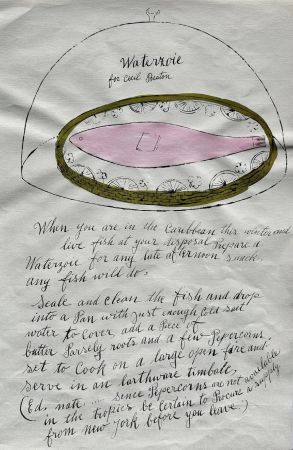 Waterzoie
for Cecil Beaton
When you are in the Caribbean this winter and
live fish at your disposal Prepare a
Waterzoie for any late afternoon snack.
any fish will do.
Scale and clean the fish and drop
into a Pan with just enough Cold salt
water to Cover add a Piece of
butter Parsely roots and a few Pepercorns
set to Cook on a large open fire and-
serve in an Earthware timbale,
(Ed. note ... since Pepercorns are not available
in the tropics be Certain to Procure a supply
from New York before you leave.)